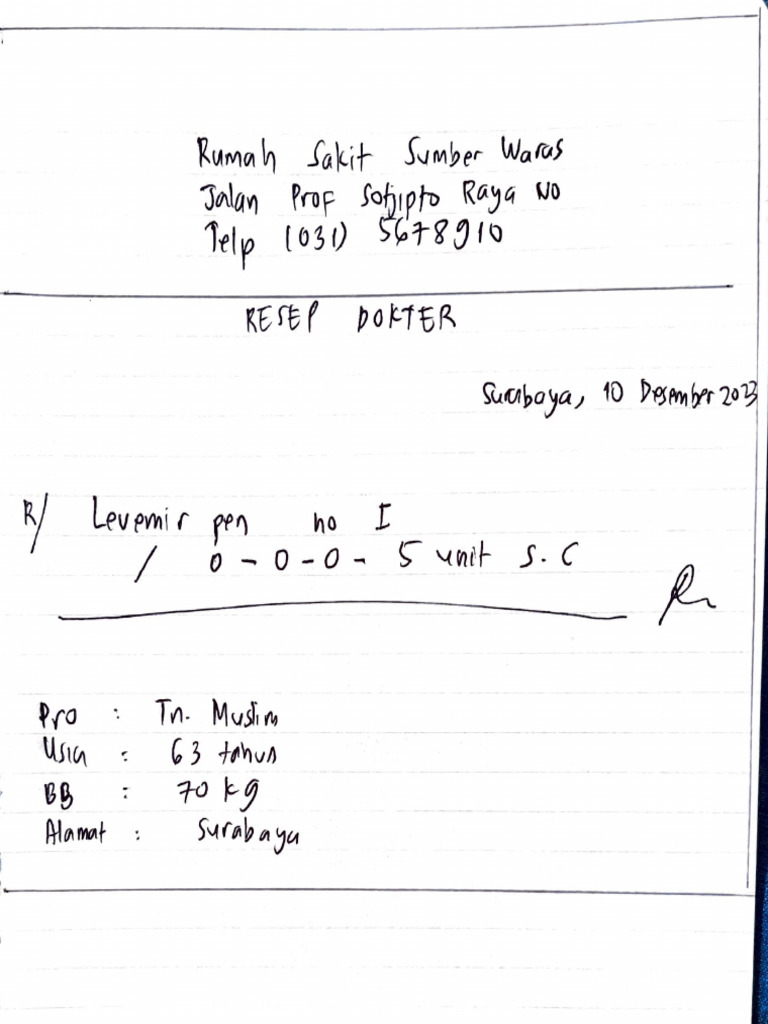 Rumah Sakit Sumber Waras
Jalan Prof Sotjipto Raya No
Telp (031) 5678910
RESEP DOKTER
Surabaya, 10 Desember 2023
R/ Levemir pen no I
/ 0 - 0 - 0 - 5 unit s.c
Pro : Tn. Muslim
Usia : 63 tahun
BB : 70 kg
Alamat : Surabaya